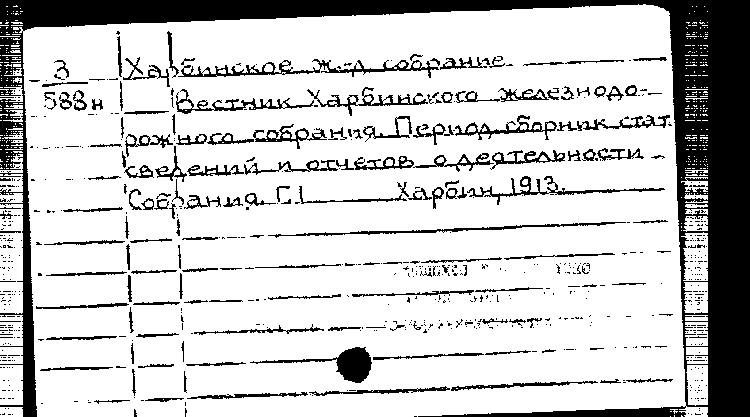 3 Харбинское ж.-д собрание.
588н Вестник Харбинского железнодо-
рожного собрания. Период. сборник стат.
сведений и отчетов о деятельности
Собрания. Харбин, 1913.